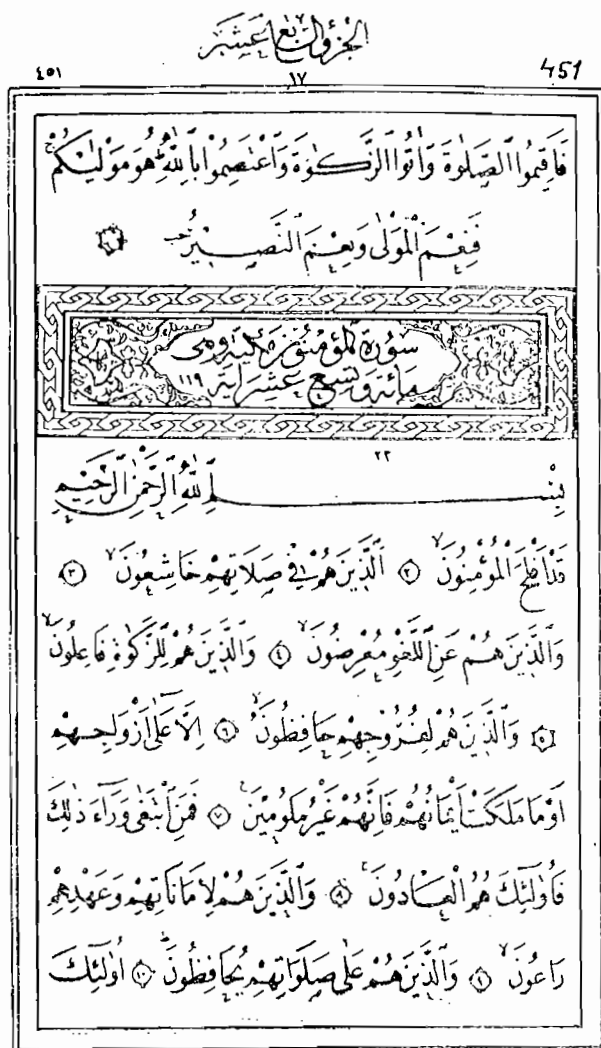 الجزؤالسابع عشر
٤٥١ ١٧ 451
فَاَقِيمُوا ٱلصَّلٰوةَ وَاٰتُوا ٱلزَّكٰوةَ وَٱعْتَصِمُوا بِٱللّٰهِ هُوَ مَوْلٰيكُمْ
فَنِعْمَ ٱلْمَوْلٰى وَنِعْمَ ٱلنَّصِيرُ
سورة المؤمنون مكية وهى
مائة وتسع عشر اية ١١٩
٢٣
بِسْمِ ٱللّٰهِ ٱلرَّحْمٰنِ ٱلرَّحِيمِ
قَدْ اَفْلَحَ ٱلْمُؤْمِنُونَ ٢ اَلَّذِينَ هُمْ فِي صَلَاتِهِمْ خَاشِعُونَ ٣
وَٱلَّذِينَ هُمْ عَنِ ٱللَّغْوِ مُعْرِضُونَ ٤ وَٱلَّذِينَ هُمْ لِلزَّكٰوةِ فَاعِلُونَ
٥ وَٱلَّذِينَ هُمْ لِفُرُوجِهِمْ حَافِظُونَ ٦ اِلَّا عَلٰٓى اَزْوَاجِهِمْ
اَوْ مَا مَلَكَتْ اَيْمَانُهُمْ فَاِنَّهُمْ غَيْرُ مَلُومِينَ ٧ فَمَنِ ٱبْتَغٰى وَرَآءَ ذٰلِكَ
فَاُولٰٓئِكَ هُمُ ٱلْعَادُونَ ٨ وَٱلَّذِينَ هُمْ لِاَمَانَاتِهِمْ وَعَهْدِهِمْ
رَاعُونَ ٩ وَٱلَّذِينَ هُمْ عَلٰى صَلَوَاتِهِمْ يُحَافِظُونَ ١٠ اُولٰٓئِكَ